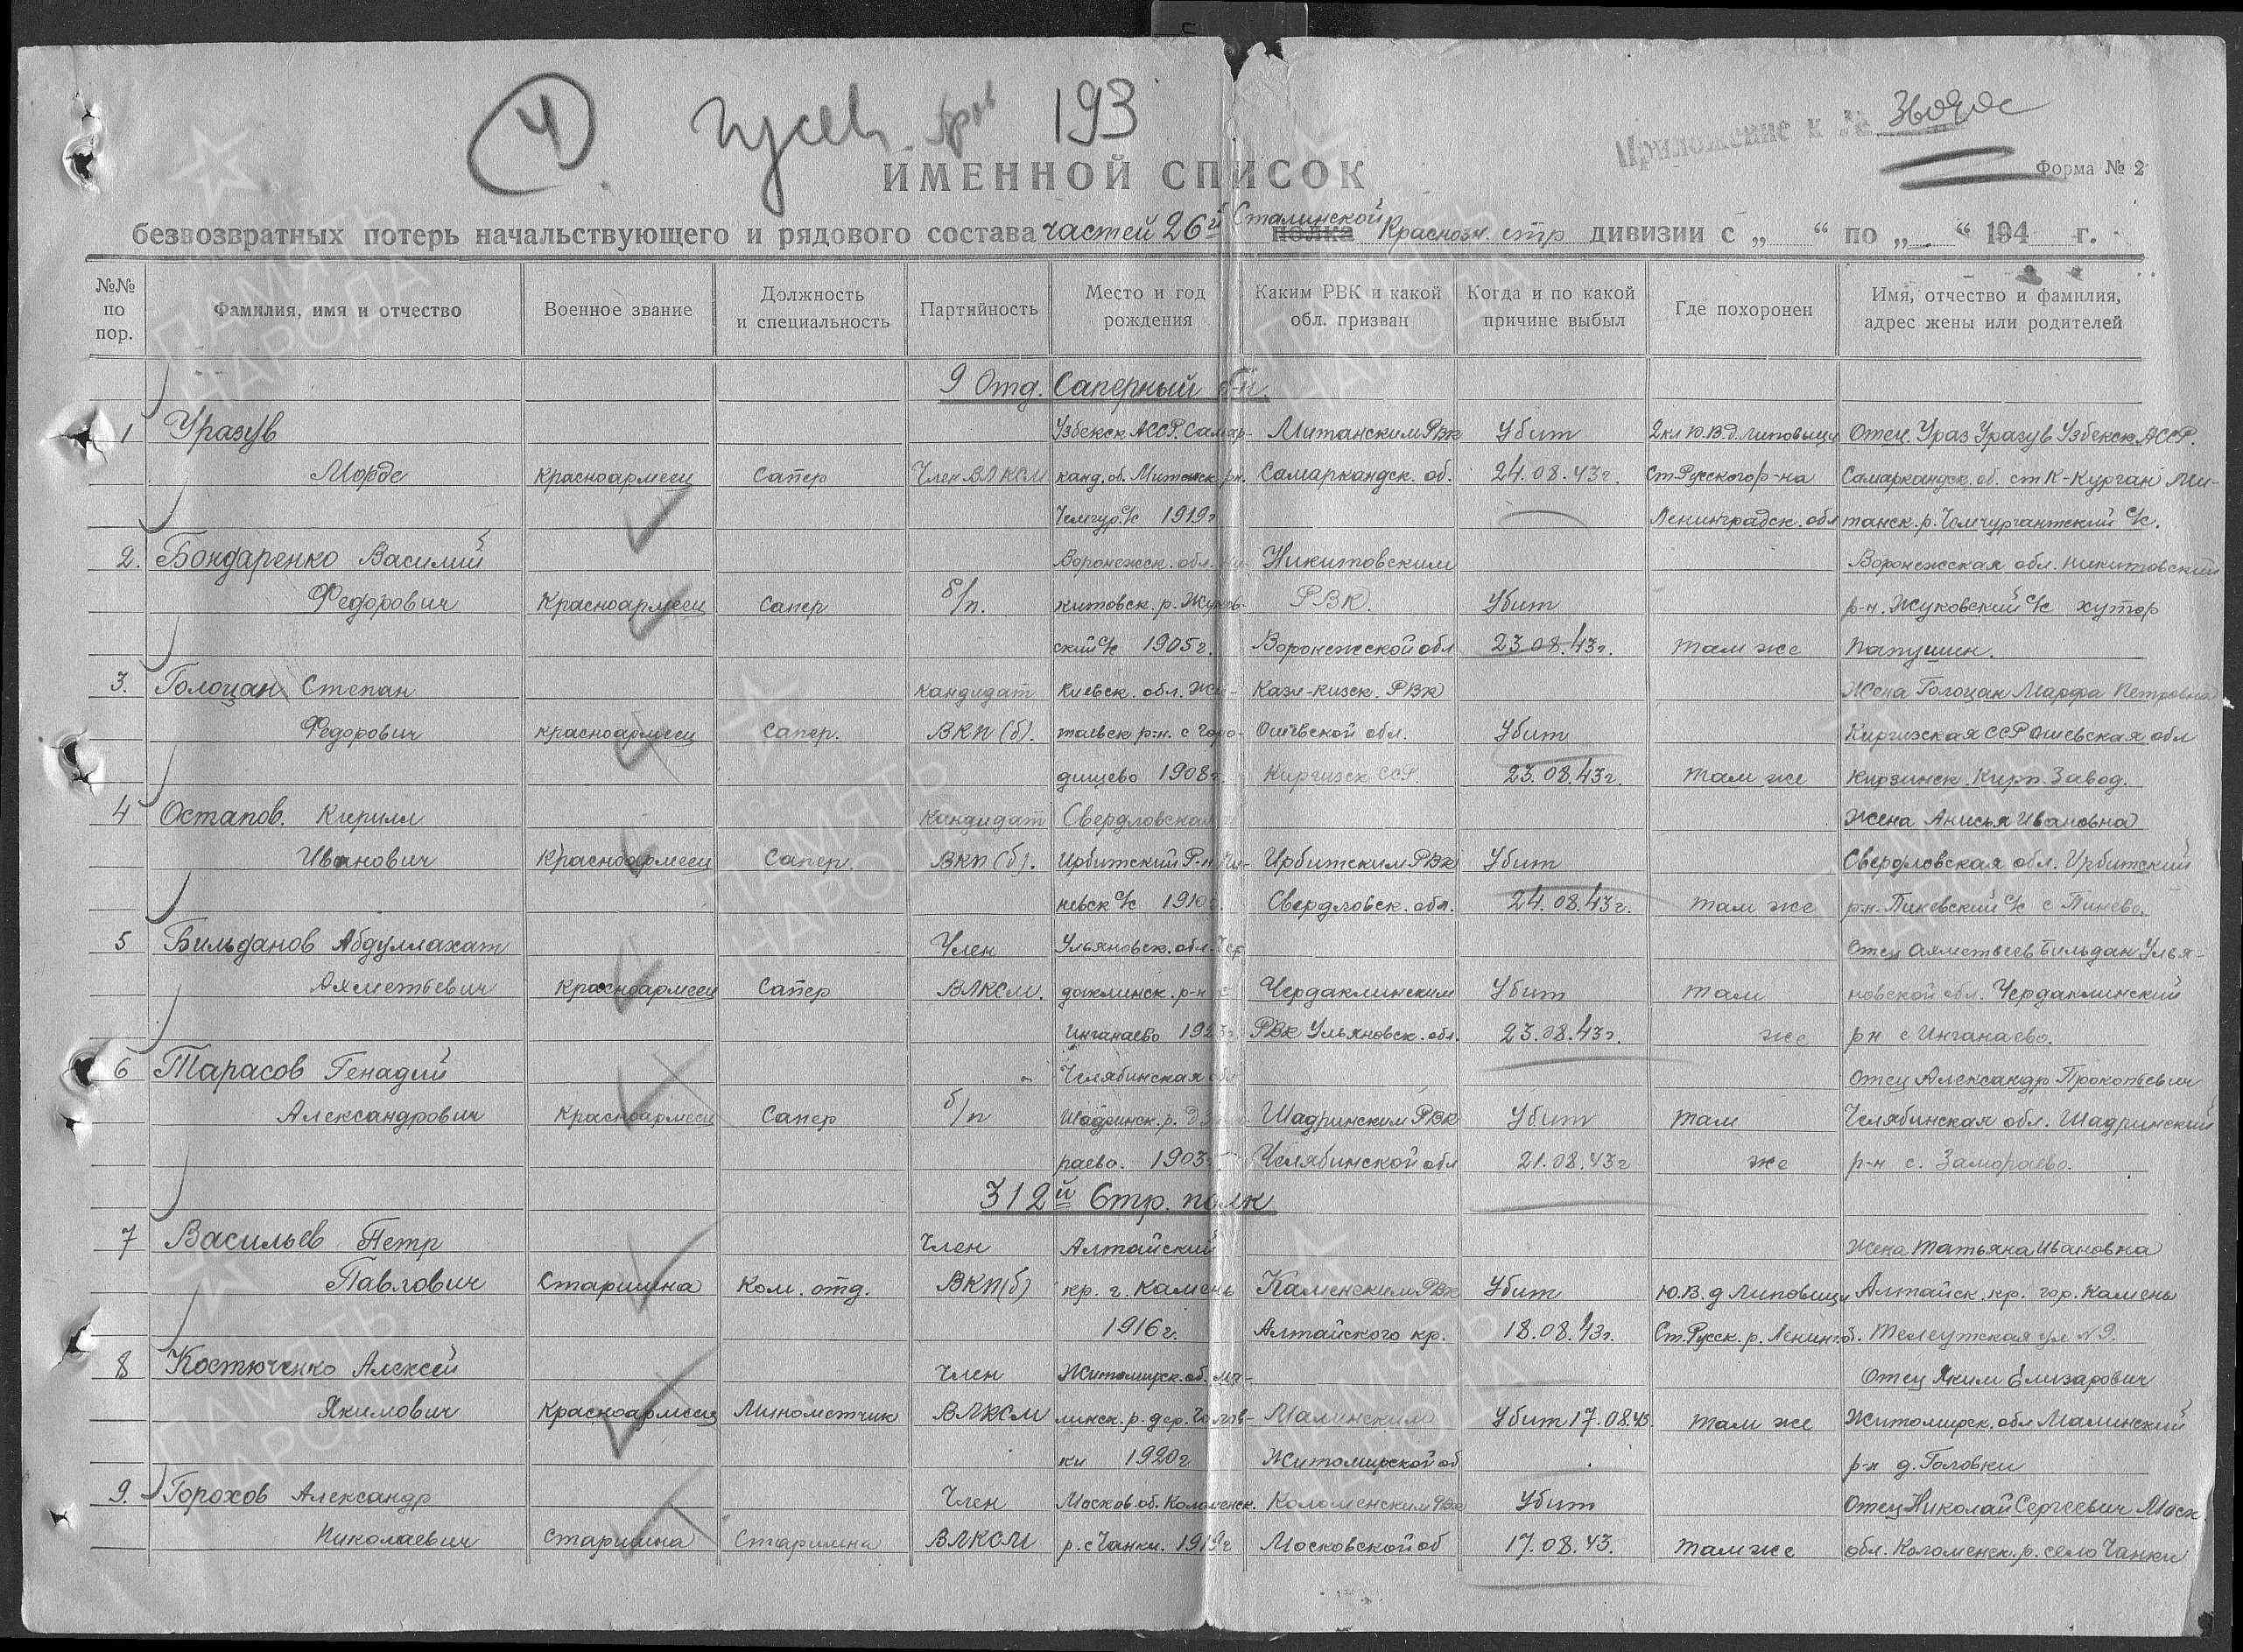 4 Гусев 193
Приложение к № 36090с
ИМЕННОЙ СПИСОК
Форма № 2
безвозвратных потерь начальствующего и рядового состава частей 26й Сталинской полка Краснозн. стр дивизии с „ “ по „ “ 194 г.
№№ по пор.
Фамилия, имя и отчество
Военное звание
Должность и специальность
Партийность
Место и год рождения
Каким РВК и какой обл. призван
Когда и по какой причине выбыл
Где похоронен
Имя, отчество и фамилия, адрес жены или родителей
9 Отд. Саперный б-н.
1 Уразув Узбекск АССР. Самар- Митанским РВК Убит 2 кл Ю.В. д. Липовицы Отец. Ураз Уразув Узбекск АССР.
Морде Красноармеец Сапер Член ВЛКСМ канд. об. Митанск рн. Самаркандск. об. 24.08.43г. Ст Русского р-на Самаркандск. об. ст К-Курган Ми-
с/с 1919г Ленинградск. обл танск. р. с/с.
2. Бондаренко Василий Воронежск. обл. Ни- Никитовским Воронежская обл. Никитовский
Федорович Красноармеец Сапер б/п. китовск. р. Жуков- РВК. Убит р-н. Жуковский с/с хутор
ский с/с 1905г. Воронежской обл 23.08.43г. там же Папушин.
3. Голоцан Степан кандидат Киевск. обл. РВК Жена Голоцан Марфа Петровна
Федорович красноармеец Сапер. ВКП (б). р-н. с Горо- Ошевской обл. Убит Киргизская ССР Ошевская обл
дищево 1908г. Киргизск ССР. 23.08.43г. там же Кирп. Завод.
4 Остапов. Кирилл Кандидат Свердловская Жена Анисья Ивановна
Иванович Красноармеец Сапер. ВКП (б). Ирбитский Р-н Пи- Ирбитским РВК Убит Свердловская обл. Ирбитский
невск с/с 1910г. Свердловск. обл. 24.08.43г. там же рн. Пиневский с/с с Пинево.
5 Бильданов Абдуллахат Член Ульяновск. обл. Чер Отец Ахметвеев Бильдан Улья-
Ахметьевич Красноармеец Сапер ВЛКСМ. даклинск. р-н с Чердаклинским Убит там новской обл. Чердаклинский
Инганаево 1923г РВК Ульяновск. обл. 23.08.43г. же рн с Инганаево.
6 Тарасов Генадий Челябинская об Отец Александр Прокопьевич
Александрович Красноармеец Сапер б/п Шадринск. р. Шадринским РВК Убит там Челябинская обл. Шадринский
раево. 1903г Челябинской обл 21.08.43г же р-н с. Замараево.
312й Стр. полк
7 Васильев Петр Член Алтайский Жена Татьяна Ивановна
Павлович Старшина Ком. отд. ВКП(б) кр. г. Камень Каменским РВК Убит Ю.В. д Липовицы Алтайск. кр. гор. Камень
1916г. Алтайского кр. 18.08.43г. Ст. Русск. р. Ленинг. об. Телеутская ул № 9.
8 Костюченко Алексей Член Житомирск. об. Ма- Отец Яким Елизарович
Якимович Красноармеец Минометчик ВЛКСМ линск. р. дер. Голов- Малинским Убит 17.08.43 там же Житомирск. обл Малинский
ки 1920г Житомирской об р-н д. Головки
9. Горохов Александр Член Москов. об. Коломенск. Коломенским РВК Убит Отец Николай Сергеевич Моск.
Николаевич Старшина Старшина ВЛКСМ р. с Чанки. 1919г Московской об 17.08.43. там же обл. Коломенск. р. село Чанки
ПАМЯТЬ НАРОДА